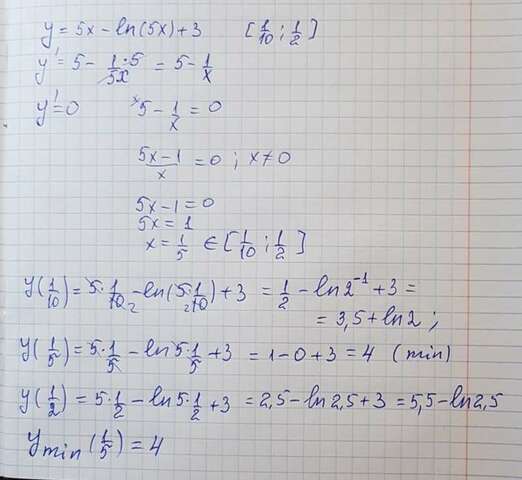 y = 5x - ln(5x) + 3 [1/10 ; 1/2]
y' = 5 - 1·5/5x = 5 - 1/x
y' = 0 x5 - 1/x = 0
5x-1/x = 0 ; x ≠ 0
5x - 1 = 0
5x = 1
x = 1/5 ∈ [1/10 ; 1/2]
y(1/10) = 5·1/10 2 - ln(5·1/10 2) + 3 = 1/2 - ln2⁻¹ + 3 =
= 3,5 + ln2 ;
y(1/5) = 5·1/5 - ln5·1/5 + 3 = 1 - 0 + 3 = 4 (min)
y(1/2) = 5·1/2 - ln5·1/2 + 3 = 2,5 - ln2,5 + 3 = 5,5 - ln2,5
y min (1/5) = 4